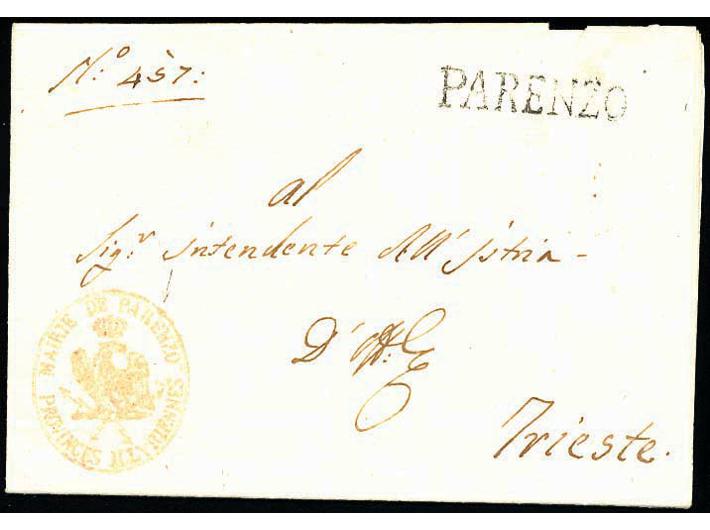 N:º 457:
PARENZO
al
Sig:r Intendente dell' Istria -
D' Uff:
Trieste.
MAIRIE DE PARENZO
PROVINCES ILLYRIENNES